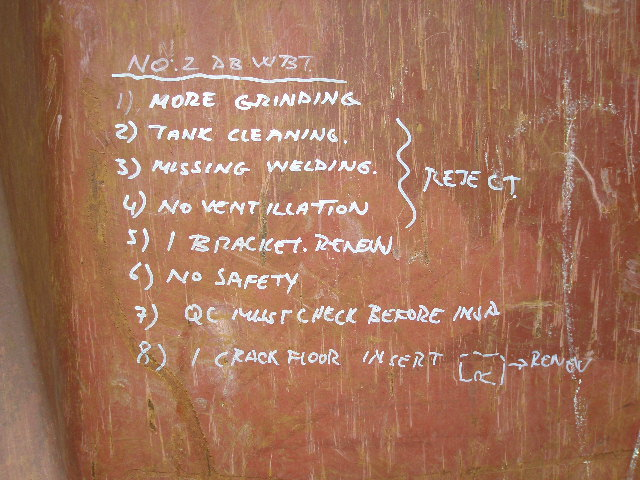 NO.2 DB WBT
1) MORE GRINDING
2) TANK CLEANING.
3) MISSING WELDING.
REJECT.
4) NO VENTILLATION
5) 1 BRACKET. RENEW
6) NO SAFETY
7) QC MUST CHECK BEFORE INSP
8) 1 CRACK FLOOR INSERT → RENEW